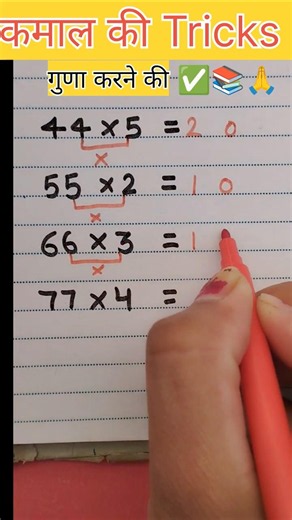 कमाल की Tricks
गुणा करने की ✅📚🙏
44 × 5 = 2 0
×
55 × 2 = 1 0
×
66 × 3 = 1
×
77 × 4 =